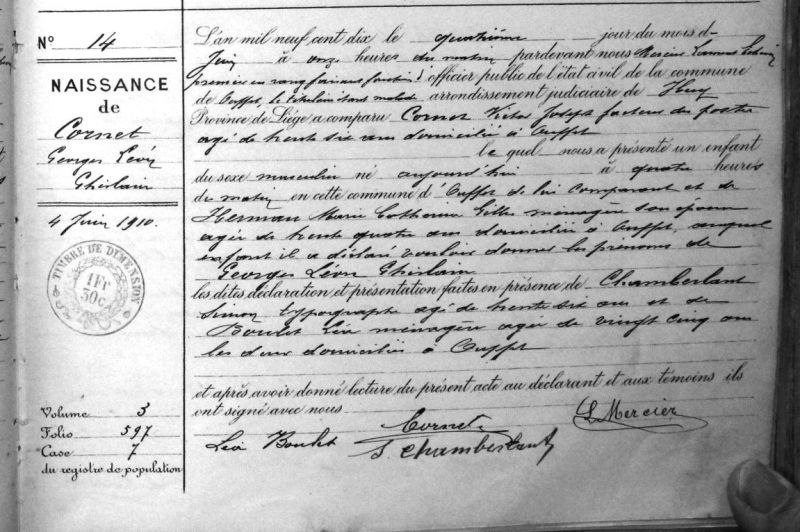 N° 14
NAISSANCE
de
Cornet
Georges Léon
Ghislain
4 Juin 1910.
TIMBRE DE DIMENSION
1 Fr
50 c.
Volume 3
Folio 597
Case 7
du registre de population
L'an mil neuf cent dix le quatrième jour du mois d
Juin à onze heures du matin pardevant nous Mercier
premier en rang faisant fonction d'officier public de l'état civil de la commune
de Ouffet, le titulaire étant malade arrondissement judiciaire de Huy
Province de Liége a comparu Cornet Victor Joseph facteur des postes
agé de trente six ans domicilié à Ouffet
le quel nous a présenté un enfant
du sexe masculin né aujourd'hui à quatre heures
du matin en cette commune d'Ouffet de lui comparant et de
Herman Marie Catherine ménagère son épouse
agée de trente quatre ans domiciliée à Ouffet, auquel
enfant il a déclaré vouloir donner les prénoms de
Georges Léon Ghislain
les dites déclaration et présentation faites en présence de Chamberlant
Simon typographe agé de trente six ans et de
Boulet Léa ménagère agée de vingt cinq ans
les deux domiciliés à Ouffet
et après avoir donné lecture du présent acte au déclarant et aux témoins ils
ont signé avec nous
Léa Boulet Cornet L. Mercier
S. Chamberlant